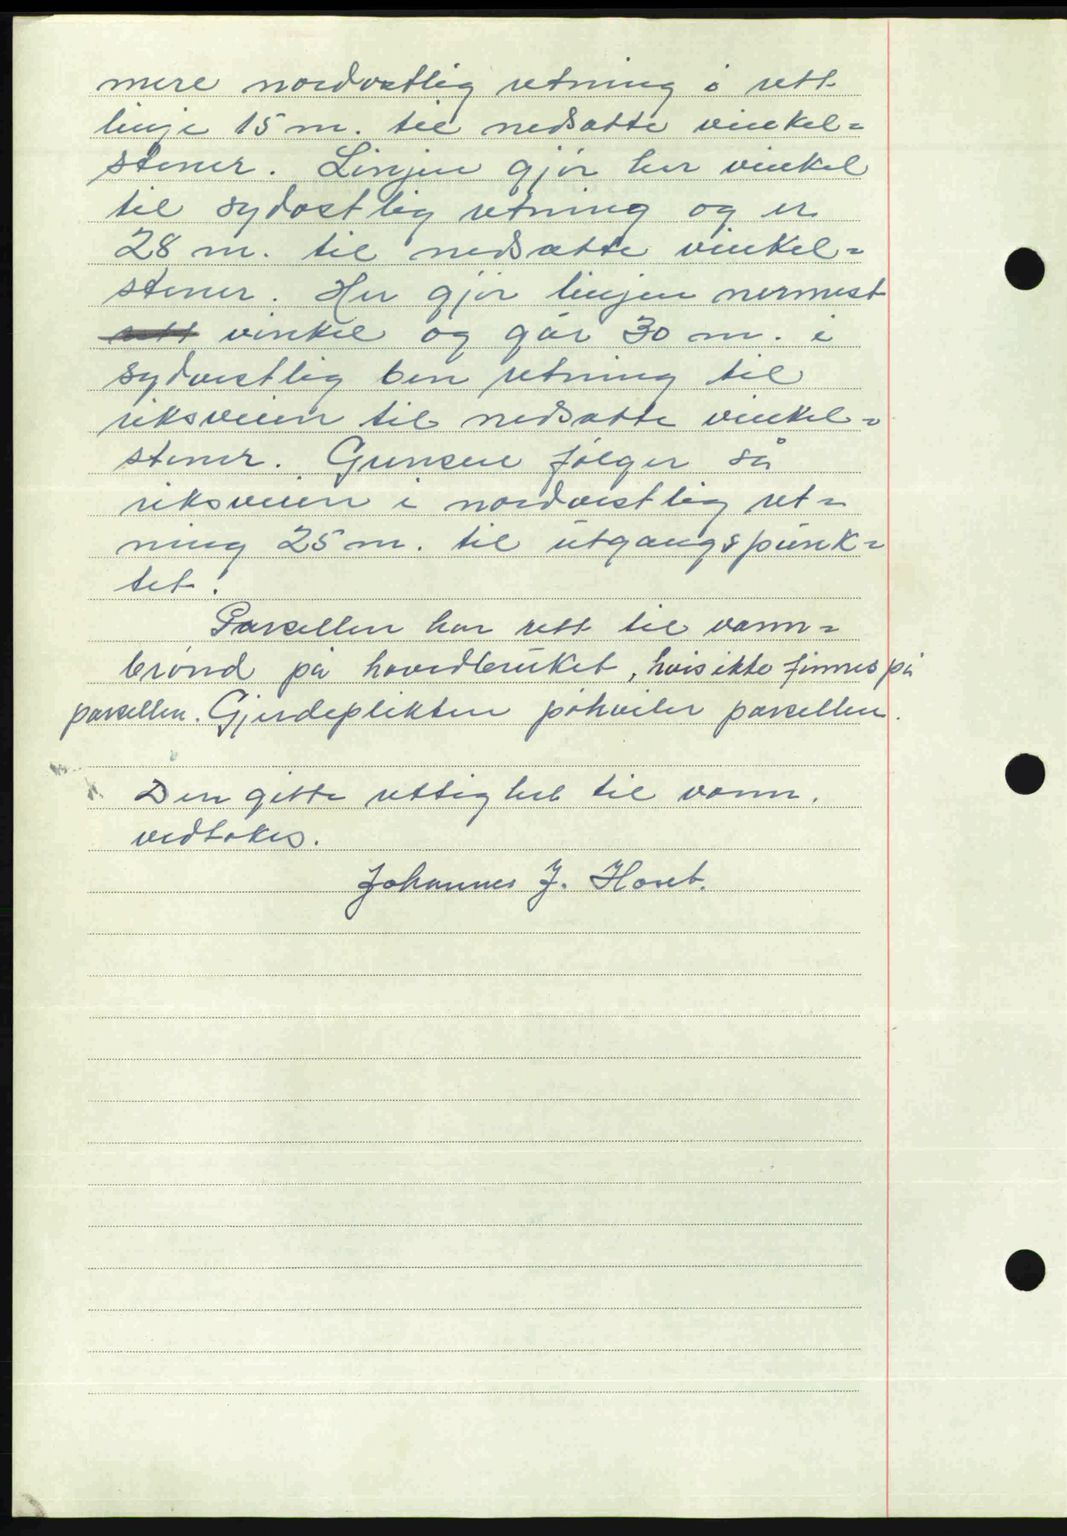 mere nordostlig retning i rett
linje 15 m. til nedsatte vinkel=
stener. Linjen gjör her vinkel
til sydostlig retning og er
28 m. til nedsatte vinkel=
stener. Her gjör linjen nermest
rett vinkel og går 30 m. i
sydvestlig ben retning til
riksveien til nedsatte vinkel=
stener. Grensen følger så
riksveien i nordvestlig ret=
ning 25 m. til utgangspunk=
tet.
Parsellen har rett til vann=
brönd på hovedbruket, hvis ikke finnes på
parsellen. Gjerdeplikten påhviler parsellen.
Den gitte rettighet til vann,
vedtakes.
Johannes J. Hoset.